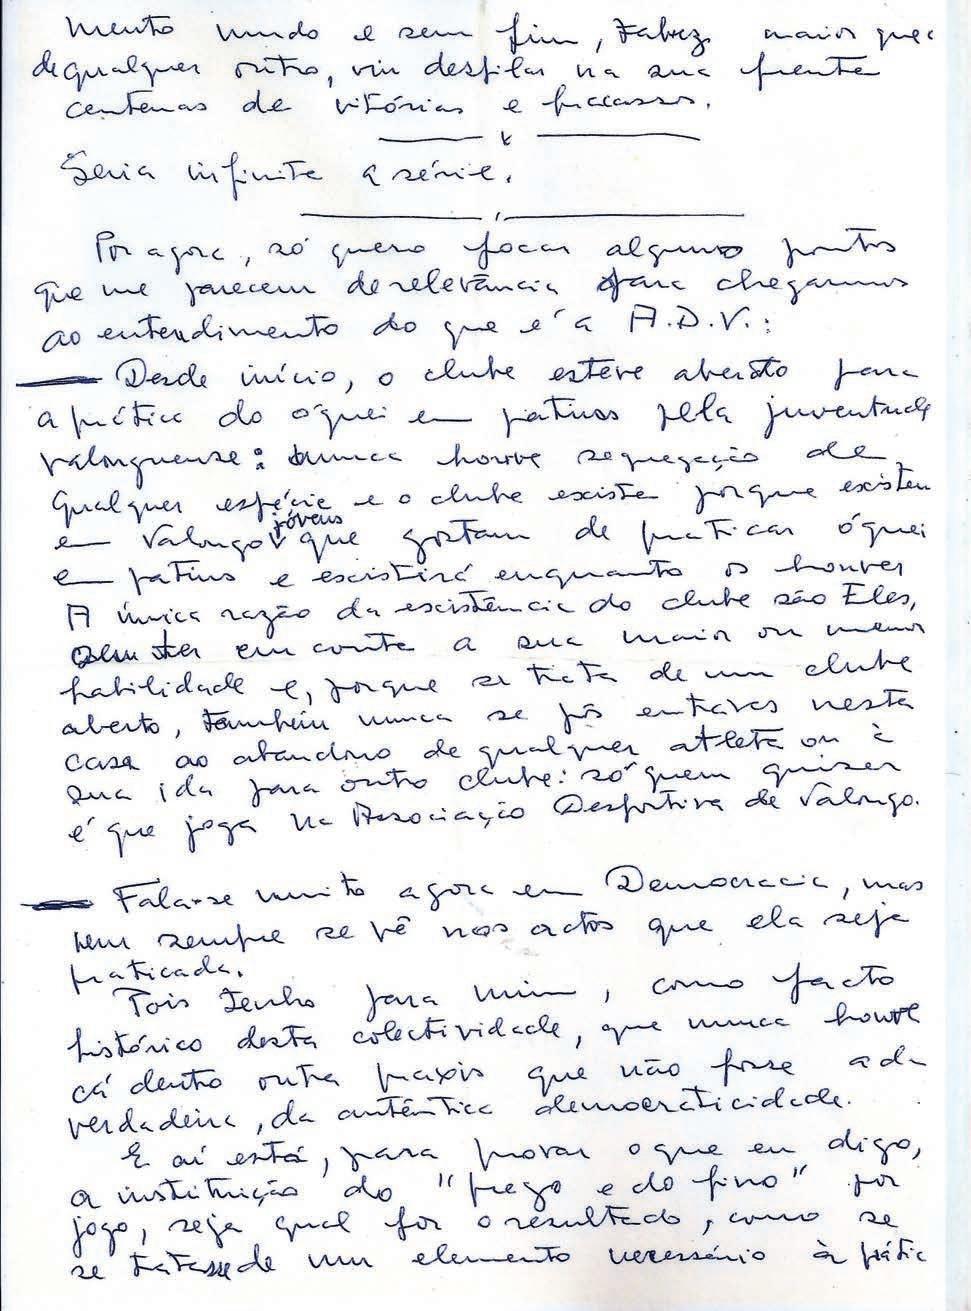 mento mudo e sem fim, talvez maior que
de qualquer outro, viu desfilar na sua frente
centenas de vitórias e fracassos.
x
Seria infinita a série.
Por agora, só quero focar alguns pontos
que me parecem de relevância para chegarmos
ao entendimento do que é a A.D.V.:
— Desde início, o clube esteve aberto para
a prática do óquei em patins pela juventude
valonguense: nunca houve segregação de
qualquer espécie e o clube existe porque existem
em Valongo jóvens que gostam de praticar óquei
em patins e existirá enquanto os houver
A única razão da existência do clube são Eles,
sem ter em conta a sua maior ou menor
habilidade e, porque se trata de um clube
aberto, também nunca se pôs entraves nesta
casa ao abandono de qualquer atleta ou à
sua ida para outro clube: só quem quiser
é que joga na Associação Desportiva de Valongo.
— Fala-se muito agora em Democracia, mas
nem sempre se vê nos actos que ela seja
praticada.
Pois tenho para mim, como facto
histórico desta colectividade, que nunca houve
cá dentro outra praxis que não fosse a da
verdadeira, da autêntica democraticidade.
E aí está, para provar o que eu digo,
a instituição do "prego e do fino" por
jogo, seja qual for o resultado, como se
se tratasse de um elemento necessário à prátic